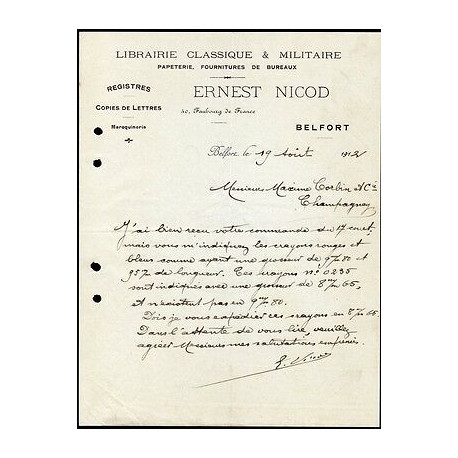 LIBRAIRIE CLASSIQUE & MILITAIRE
PAPETERIE, FOURNITURES DE BUREAUX
REGISTRES
COPIES DE LETTRES
Maroquinerie
ERNEST NICOD
40, Faubourg de France
BELFORT
Belfort, le 19 Août 1912
Messieurs Maxime Corbin & Cie
Champagney
J'ai bien reçu votre commande du 17 court
mais vous m'indiquez les crayons rouges et
bleus comme ayant une grosseur de 9m/m 80 et
95 m/m de longueur. Ces crayons no 0235
sont indiqués avec une grosseur de 8m/m 65.
et n'existent pas en 9m/m 80.
Dois je vous expédier ces crayons en 8m/m 65.
Dans l'attente de vous lire, veuillez
agréer Messieurs mes salutations empressées.
E. Nicod